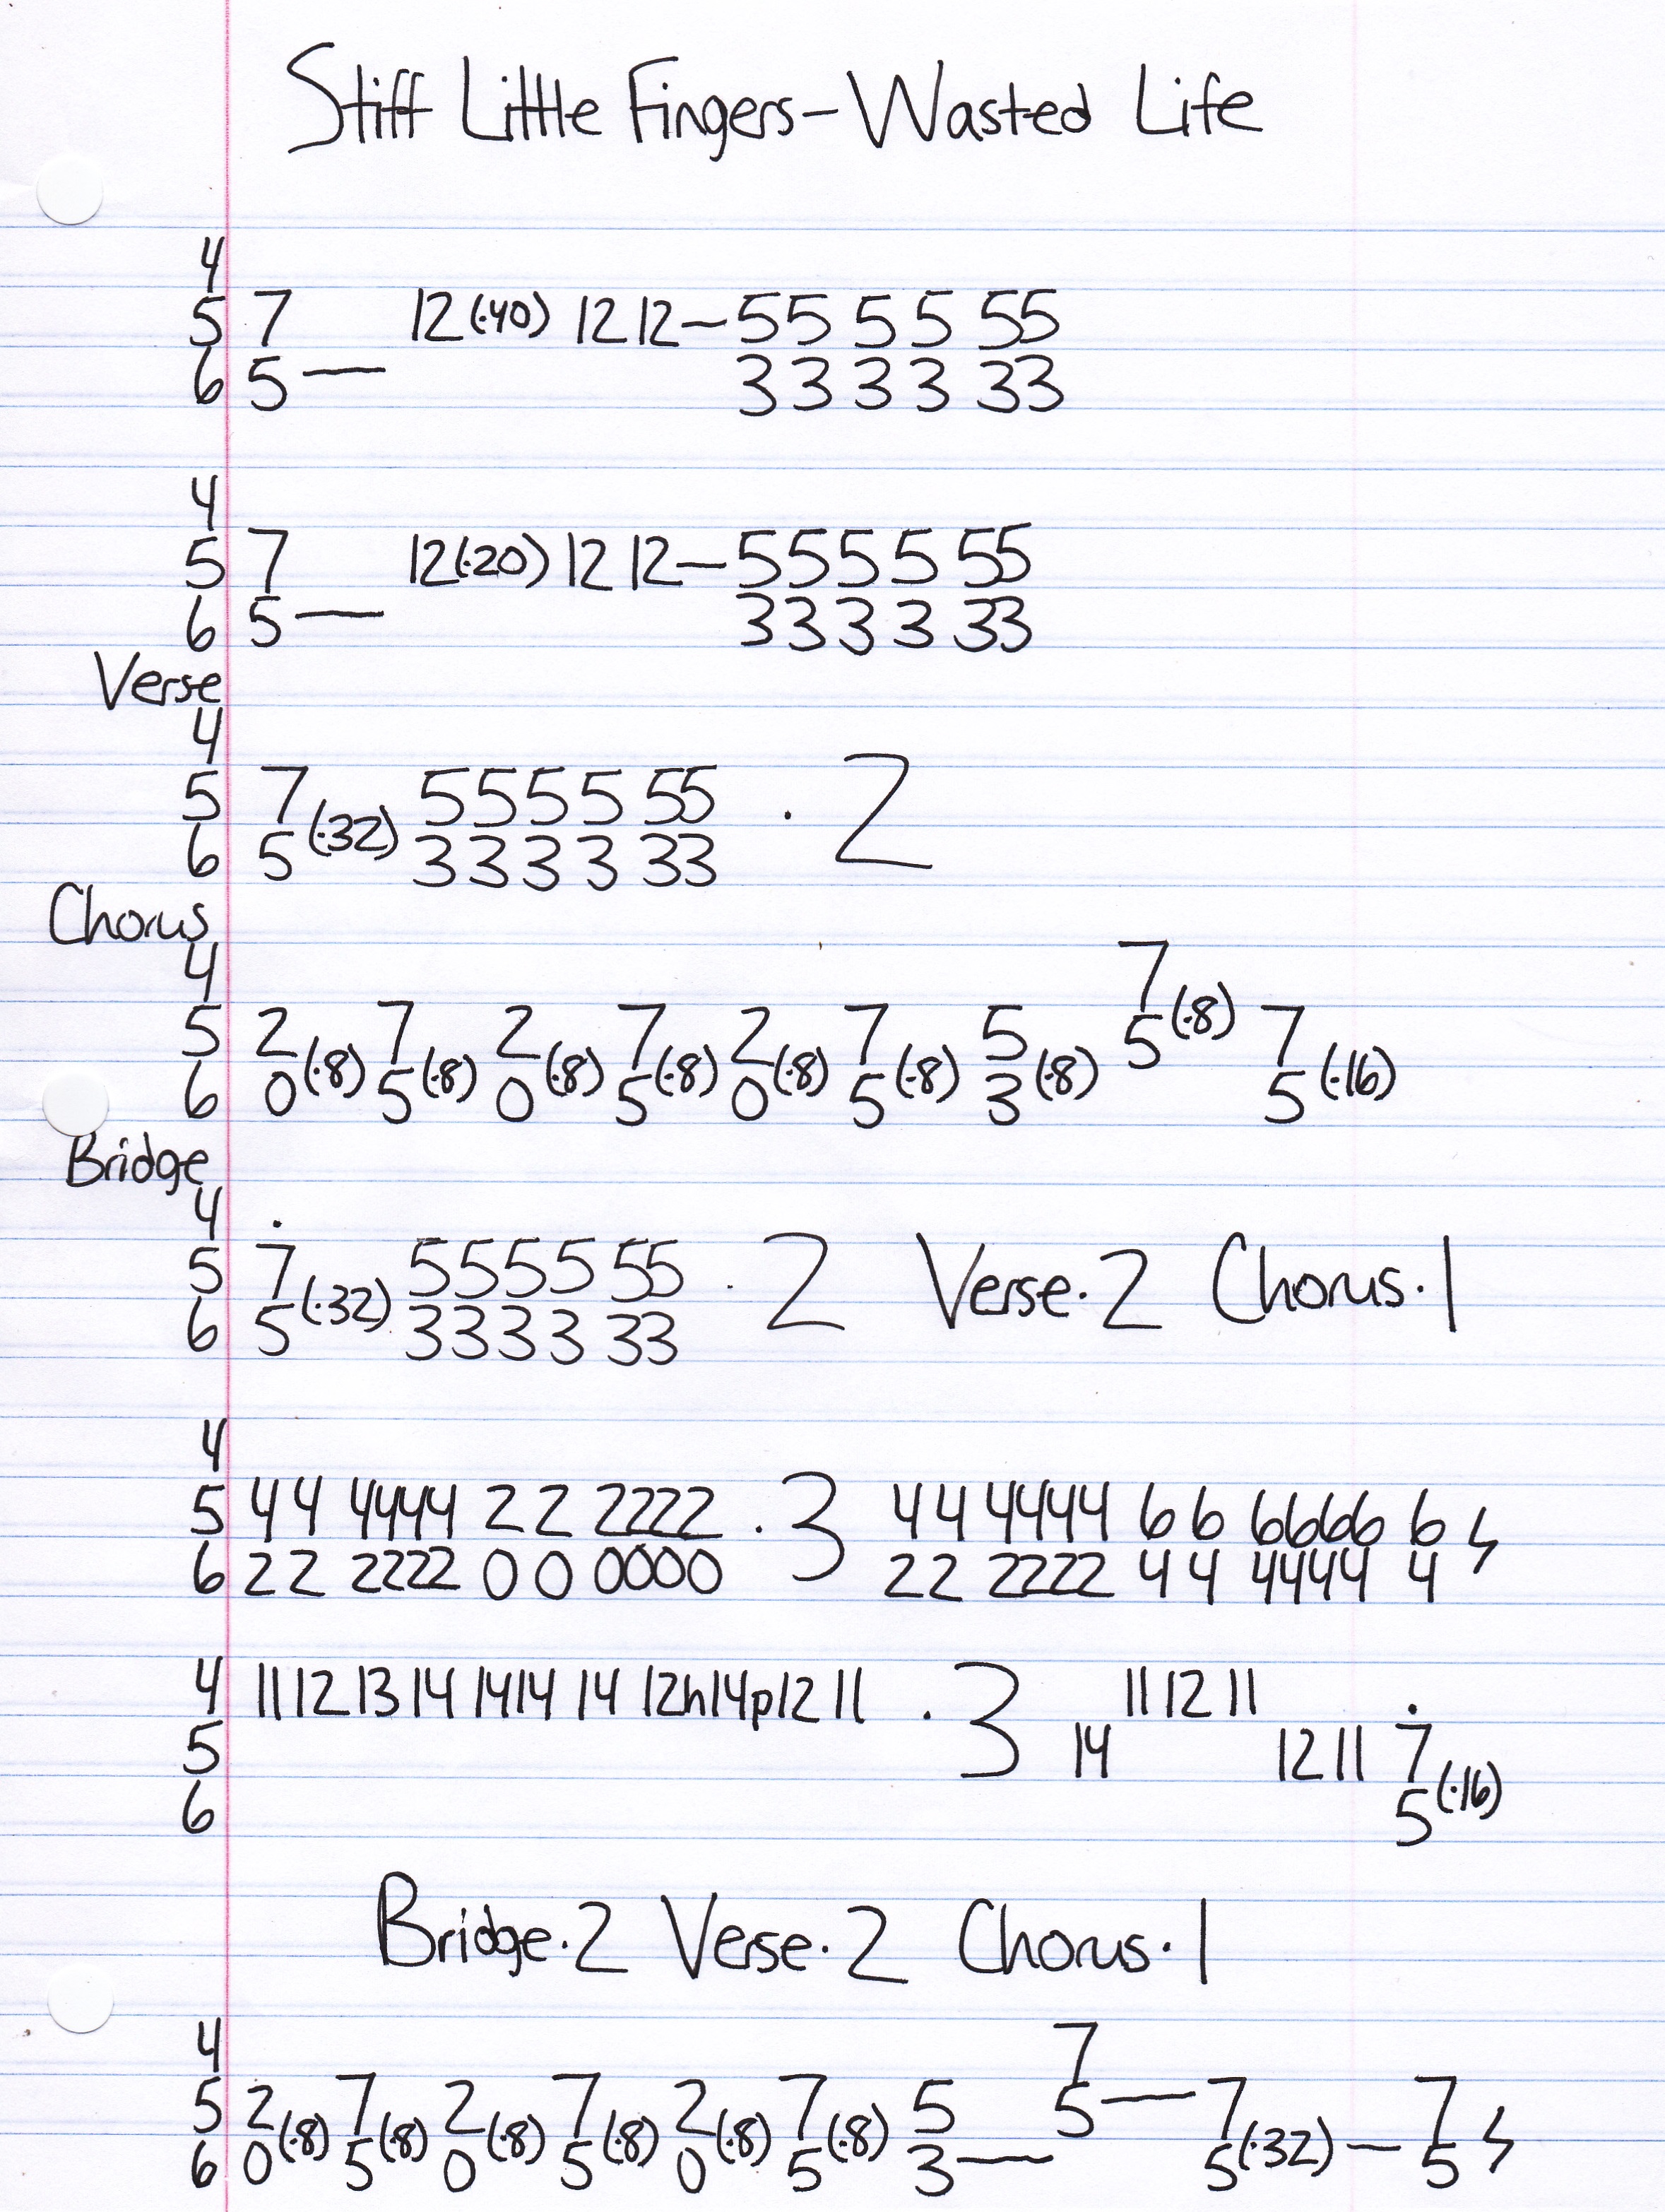 Stiff Little Fingers - Wasted Life
4
5 7 12(·40) 12 12—55 5 5 55
6 5— 33 3 3 33
4
5 7 12(·20) 12 12—555 5 55
6 5— 333 3 33
Verse
4
5 7 5555 55 · 2
6 5 (·32) 3333 33
Chorus
4 7
5 2 7 2 7 2 7 5 5(·8) 7
6 0(·8) 5(·8) 0(·8) 5(·8) 0(·8) 5(·8) 3(·8) 5(·16)
Bridge
4 .
5 7 5555 55 · 2 Verse·2 Chorus·1
6 5(·32) 3333 33
4
5 44 4444 22 2222 · 3 44 4444 66 6666 6 ϟ
6 22 2222 00 0000 22 2222 44 4444 4
4 11 12 13 14 1414 14 12h14p12 11 · 3 11 12 11 .
5 14 12 11 7
6 5(·16)
Bridge·2 Verse·2 Chorus·1
4 7
5 2 7 2 7 2 7 5 5— 7 7 ϟ
6 0(·8) 5(·8) 0(·8) 5(·8) 0(·8) 5(·8) 3— 5(·32)— 5